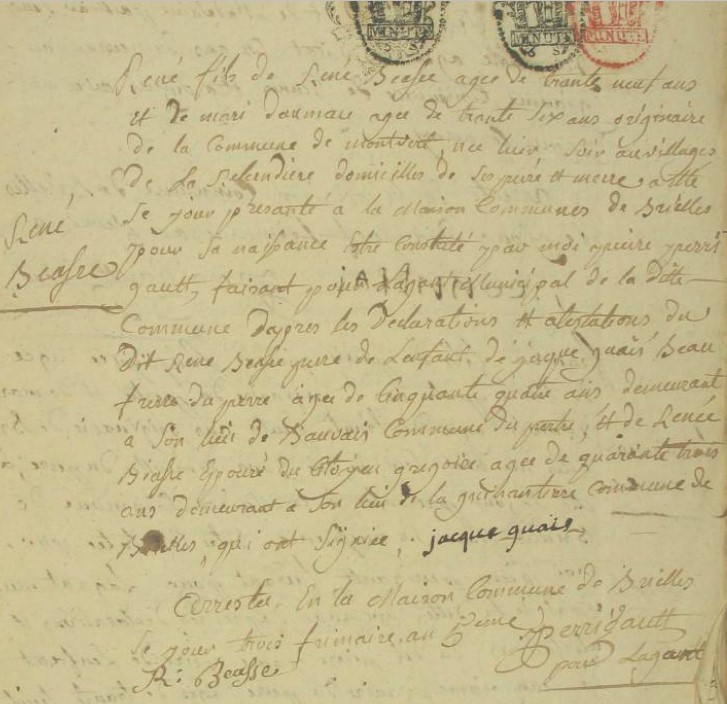 MINUTE
MINUTE
MINUTE
René fils de René Beasse agee de trante neuf ans
et de mari daumais agee de trante six ans originaire
de la Commune de montvert, nee hier soir au villages
de La domicilles de ses peire et meire a ette
Se jour presanté à la Maison Communes de Brielles
pour Sa naissance Estre Constaté par moi pieire perri
gault, faisant pour Lagant Municipal de la ditte
Commune dapres les Declarations et atestations du
dit René Beasse peire de Lenfant de jacque quais Beau
frere du perre agee de Cinquante quatre ans demeurant
a Son lieu de Bauvais Commune du pertre, et de Renée
Beasse Epouze du Citoyen gregoire agee de quarante trois
ans demeurant a Son lieu de la Commune de
Brielles, qui ont Signiee, jacque quais
René
Beasse
arrestee En la Maison Commune de Brielles
Se jour trois frimaire au 5eme
R: Beasse
P perrigault
pour Lagant